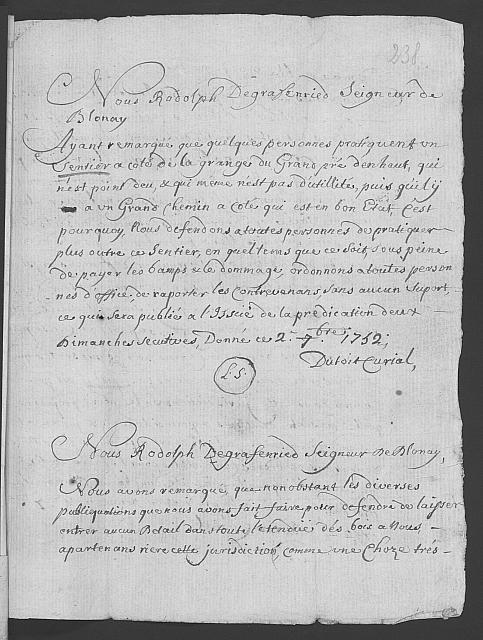 238
Nous Rodolph Degrafenried Seigneur de
Blonay
Ayant remarqué que quelques personnes pratiquent un
Sentier a coté de la grange du Grand pré denhaut, qui
n'est point deu, & qui meme n'est pas d'utillité, puis quil y
a un Grand Chemin a Coté qui est en bon Etat, C'est
pourquoy, Nous defendons a toutes personnes de pratiquer
plus outre ce Sentier, en quel tems que ce soit, sous peine
de payer le bamps & le dommage, ordonnons a toutes person
nes d'office, de raporter les Contrevenans, sans aucun suport
ce qui sera publié a l'Issüe de la predication deux
Dimanches secutives, Donné ce 2.e 7.bre 1752,
Dutoit Curial,
L.S.
Nous Rodolph Degrafenried Seigneur De Blonay,
Nous avons remarqué, que nonobstant les diverses
publiquations que nous avons fait faire pour defendre de laisser
entrer aucun Betail dans toute l'etendüe des bois a Nous
apartenans riere cette jurisdiction, comme une Choze trés